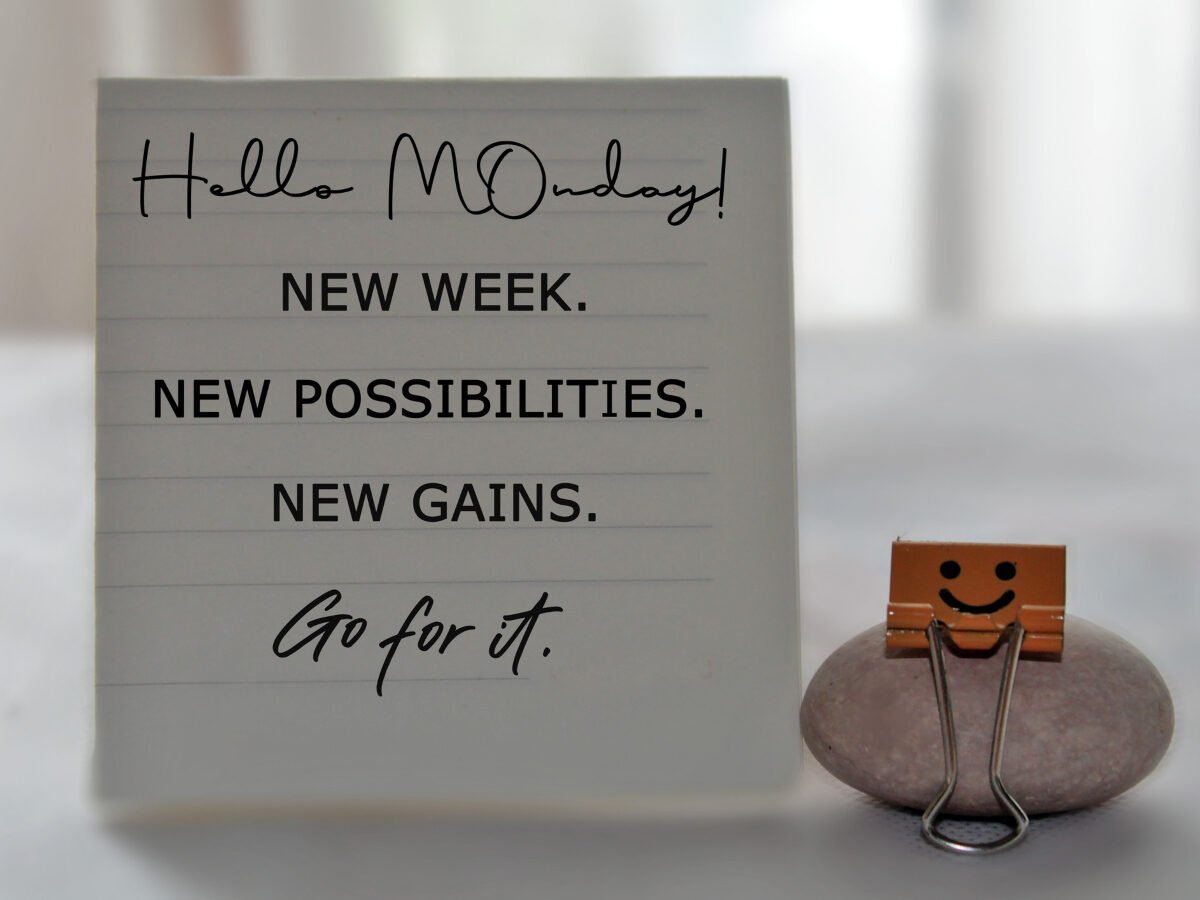 Hello MOnday!
NEW WEEK.
NEW POSSIBILITIES.
NEW GAINS.
Go for it.